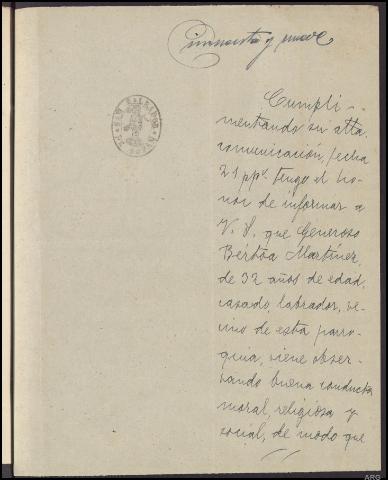 cincuenta y nueve
Cumpli-
mentando su atta.
comunicación, fecha
21 ppº. tengo el ho-
nor de informar a
V. S. que Generoso
Bértoa Martínez,
de 32 años de edad,
casado, labrador, ve-
cino de esta parro-
quia, viene obser-
vando buena conducta
moral, religiosa y
social, de modo que
ARG